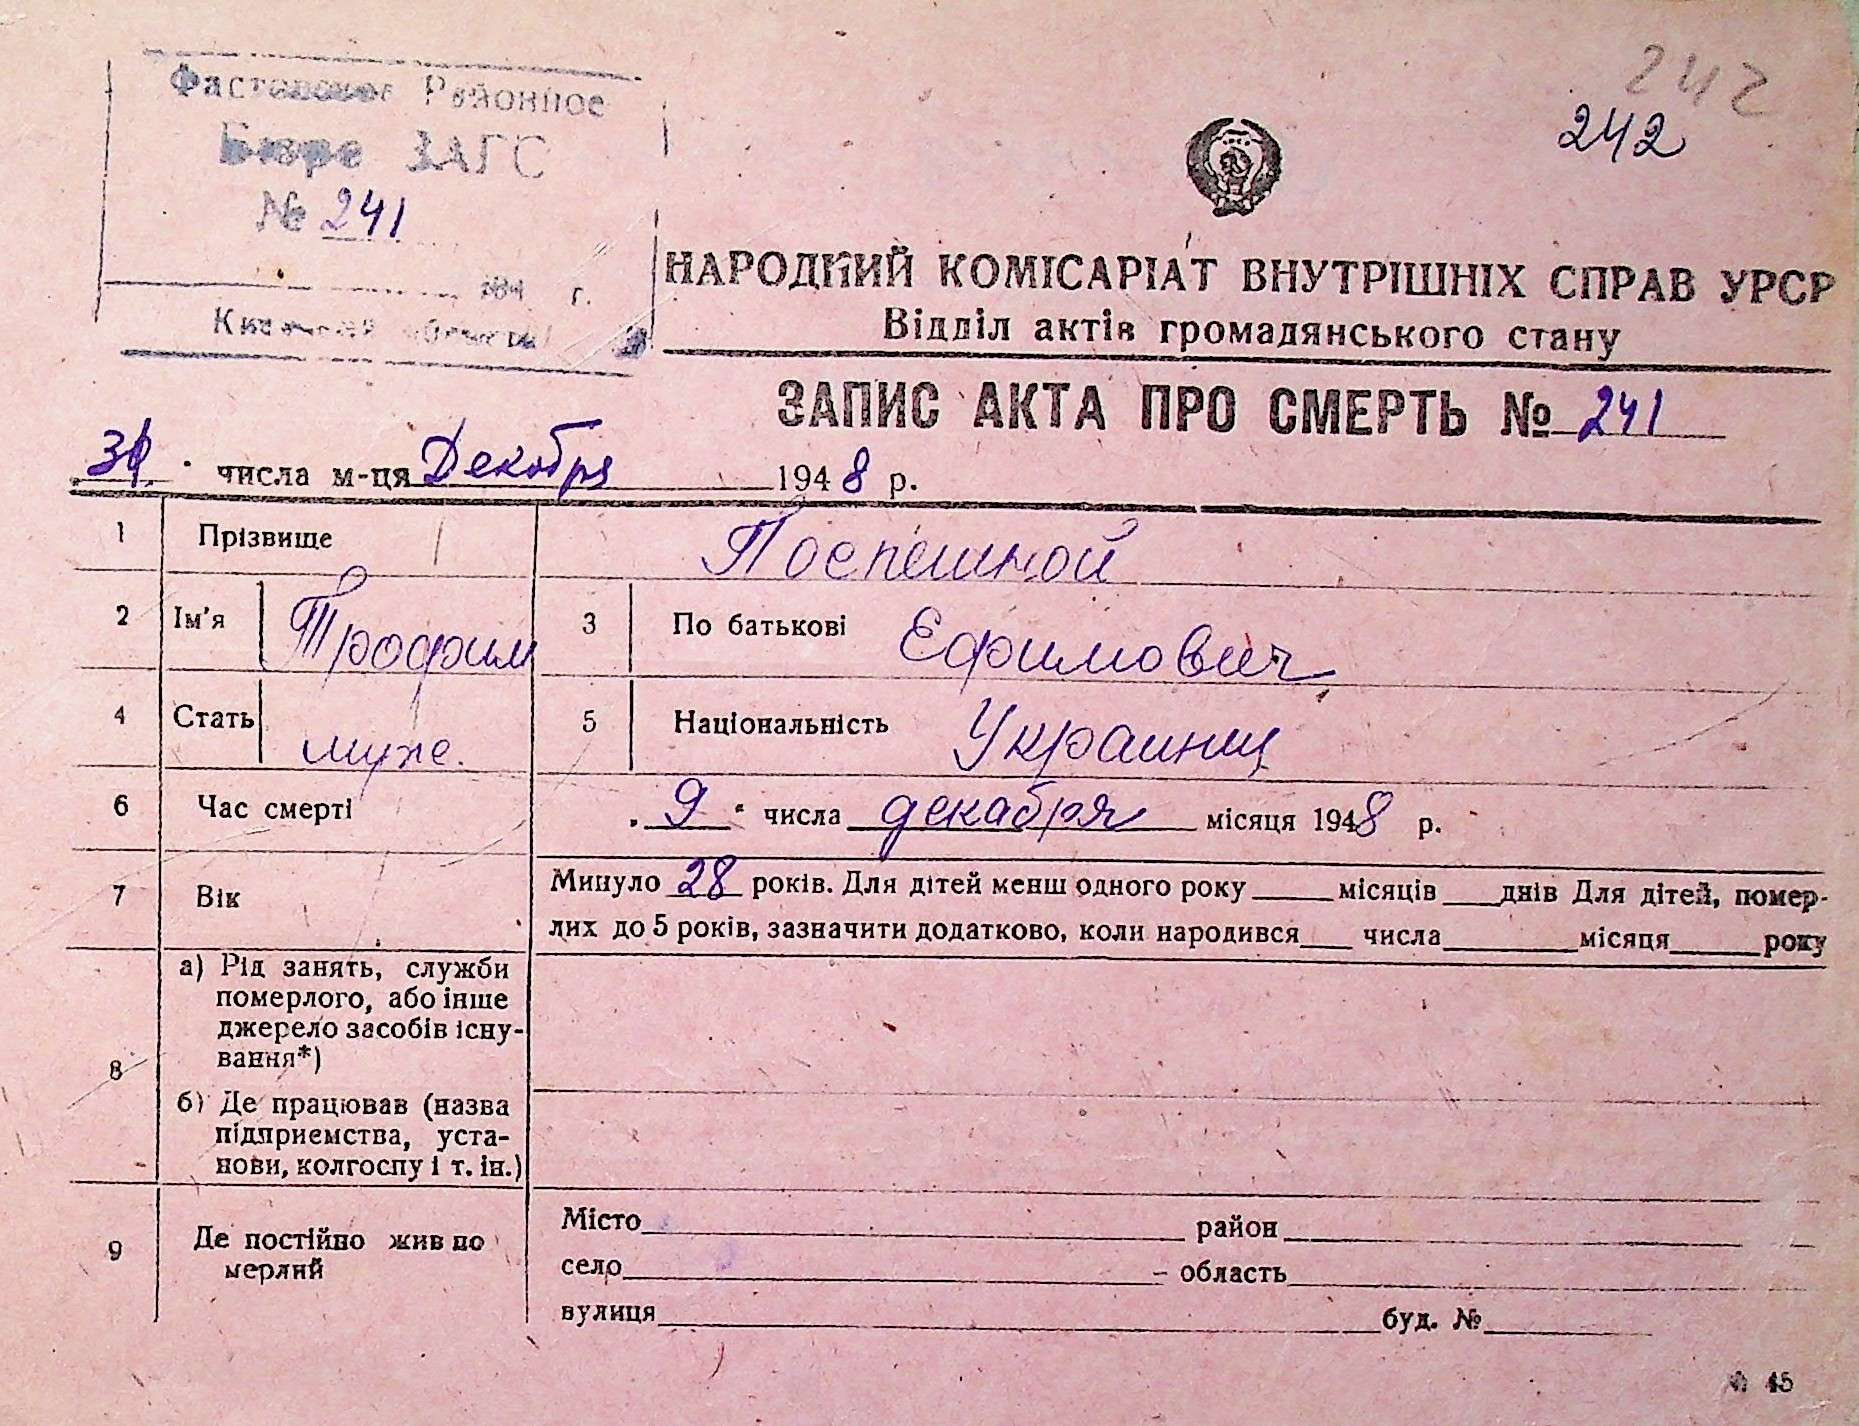 242
242
Фастовское Районное
Бюро ЗАГС
№ 241
194 г.
Киевской области
НАРОДНИЙ КОМІСАРІАТ ВНУТРІШНІХ СПРАВ УРСР
Відділ актів громадянського стану
ЗАПИС АКТА ПРО СМЕРТЬ № 241
числа м-ця Декабря 1948 р.
1 Прізвище Поспешной
2 Ім'я Трофим 3 По батькові Ефимович
4 Стать муже. 5 Національність Украинец
6 Час смерті „ 9 " числа декабря місяця 1948 р.
7 Вік Минуло 28 років. Для дітей менш одного року місяців днів Для дітей, помер-
лих до 5 років, зазначити додатково, коли народився числа місяця року
8 а) Рід занять, служби
померлого, або інше
джерело засобів існу-
вання*)
б) Де працював (назва
підприємства, уста-
нови, колгоспу і т. ін.)
9 Де постійно жив по
мерлий
Місто район
село - область
вулиця буд. №
45